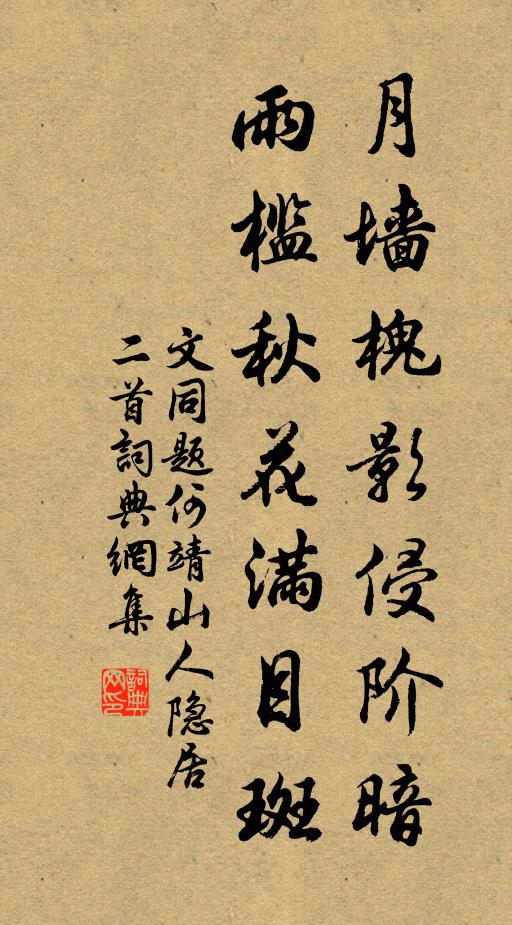 月墙槐影侵阶暗
雨槛秋花满目斑
文同题何靖山人隐居
二首詞典網集
詞典网印